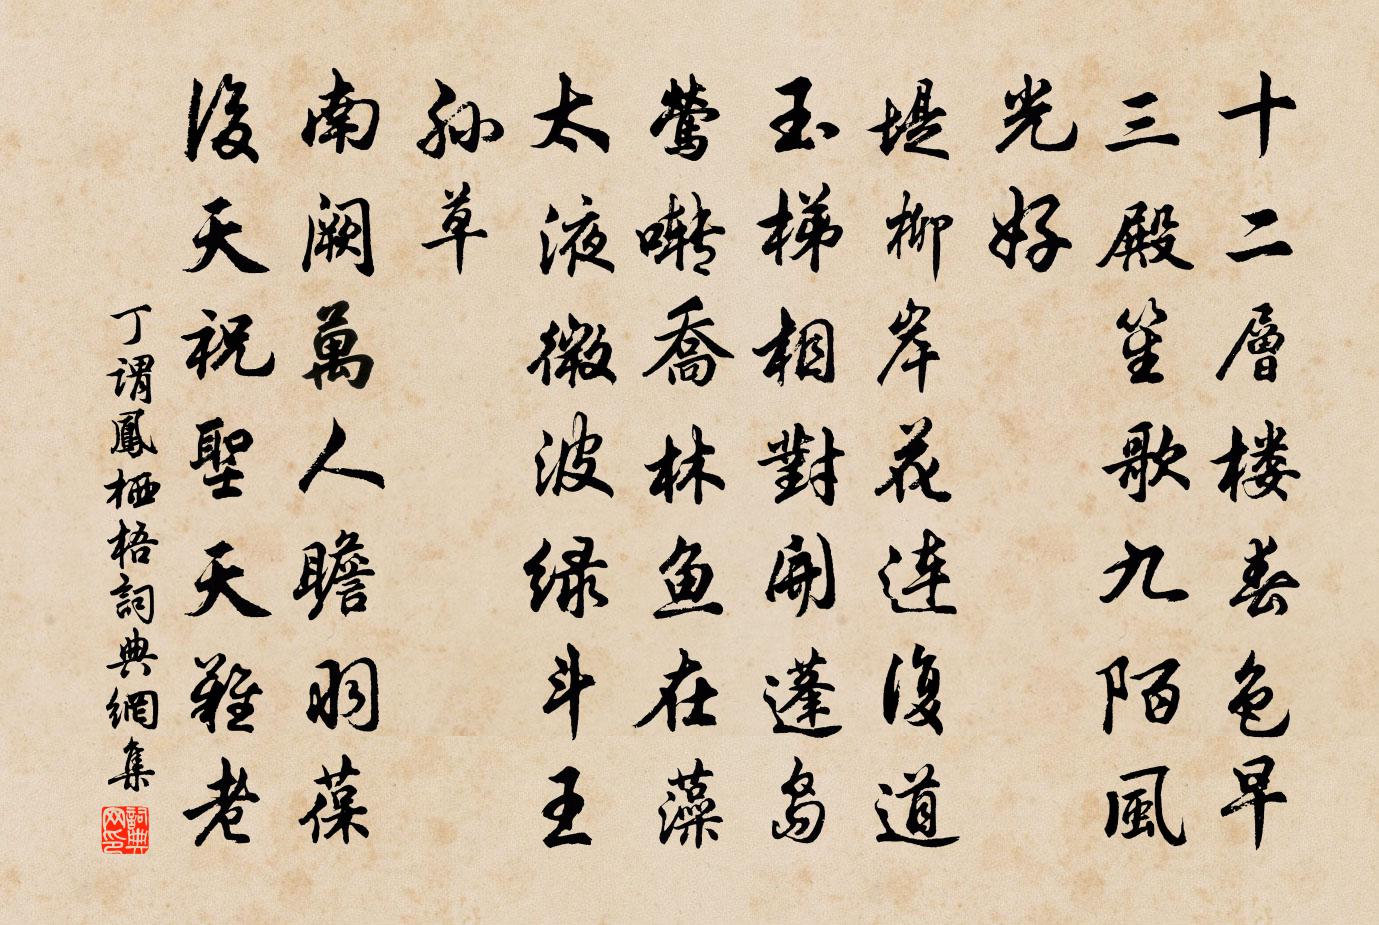 十二層楼春色早
三殿笙歌九陌風
光好
堤柳岸花连復道
玉梯相對開蓬岛
莺啭喬林魚在藻
太液微波绿斗王
孙草
南阙萬人瞻羽葆
後天祝聖天難老
丁谓鳳栖梧詞典網集
詞典网印